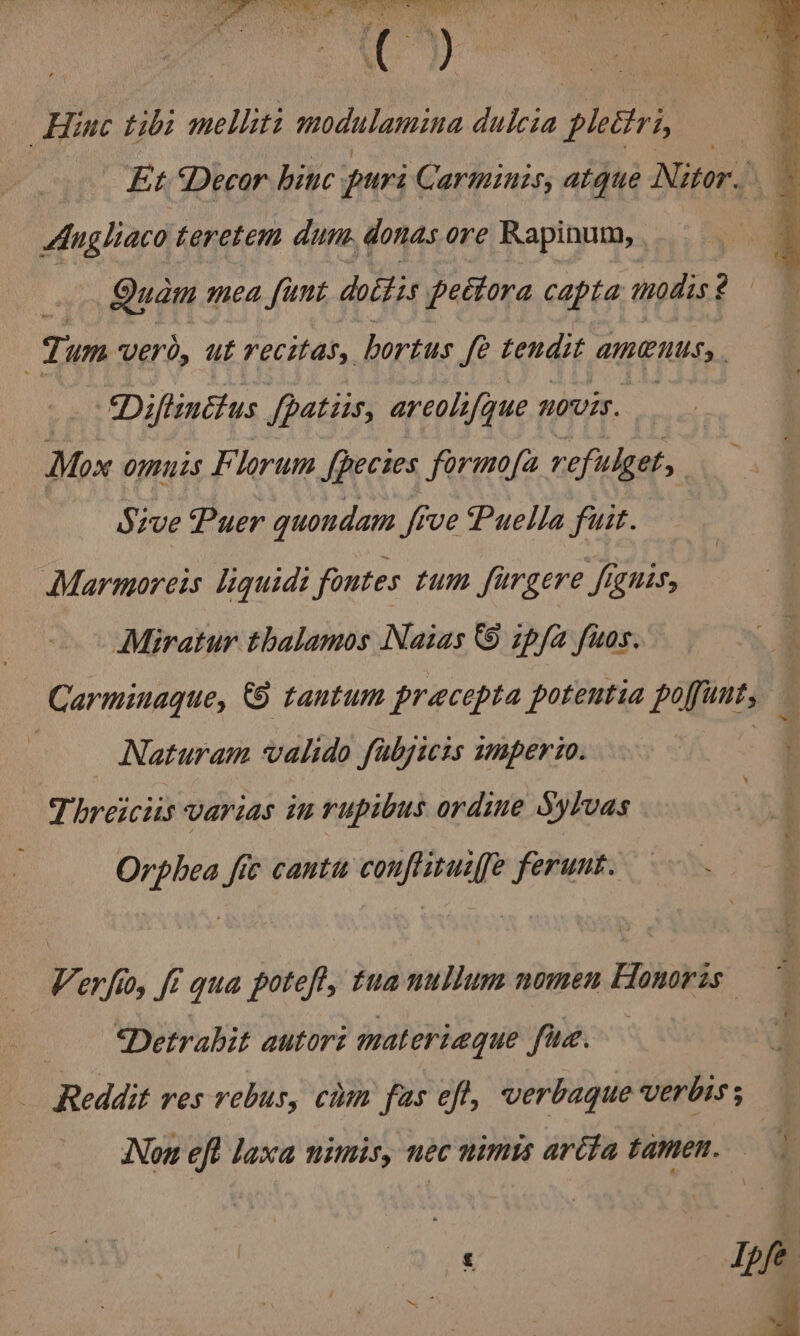 ( )
Hinc tibi melliti modulamina dulcia plectri,
Et Decor hinc puri Carminis, atque Nitor.
Angliaco teretem dum donas ore Rapinum,
Quàm mea ſunt doctis pectora capta modis?
Tum verò, ut recitas, hortus ſe tendit amœnus,
Diſtinctus ſpatiis, areoliſque novis.
Mox omnis Florum ſpecies formoſa refulget,
Sive Puer quondam ſive Puella fuit.
Marmoreis liquidi fontes tum ſurgere ſignis,
Miratur thalamos Naias & ipſa ſuos.
Carminaque, & tantum præcepta potentia poſſunt,
Naturam valido ſubjicis imperio.
Threïciis varias in rupibus ordine Sylvas
Orphea ſic cantu conſtituiſſe ferunt.
Verſio, ſi qua poteſt, tua nullum nomen Honoris
Detrahit autori materiæque ſuæ.
Reddit res rebus, cùm fas eſt, verbaque verbis;
Non eſt laxa nimis, nec nimis arcta tamen.
Ipſe